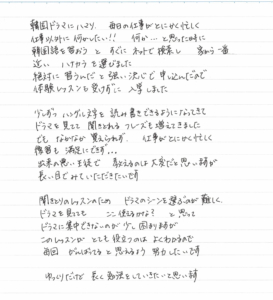 韓国ドラマにハマリ 毎日の仕事がとにかく忙しく
仕事以外に何かしたい!! 何か… と思った時に
韓国語を習おう と すぐに ネットで検索し 家から一番
近い ハナカラを選びました
絶対に 習うんだ と強い決心で 申し込んだので
体験レッスンも受けずに 入学しました
少しずつ ハングル文字を 読み書きできるようになってきて
ドラマを見てて 聞きとれる フレーズも増えてきました
でも なかなか 覚えられず 仕事がとにかく忙しく
復習も 満足にできず…
出来の悪い生徒で 教えるのは大変だと思いますが
長い目でみていただきたいです
聞きとりのレッスンのため ドラマのシーンを選ぶのが難しく
ドラマを見てても ここ使えるかな? と思って
ドラマに集中できないのが 少し困りますが
このレッスンが とても役立つのは よくわかるので
毎回 がんばってると 思えるよう 努力したいです
ゆっくりだけど 長く勉強をしていきたいと思います